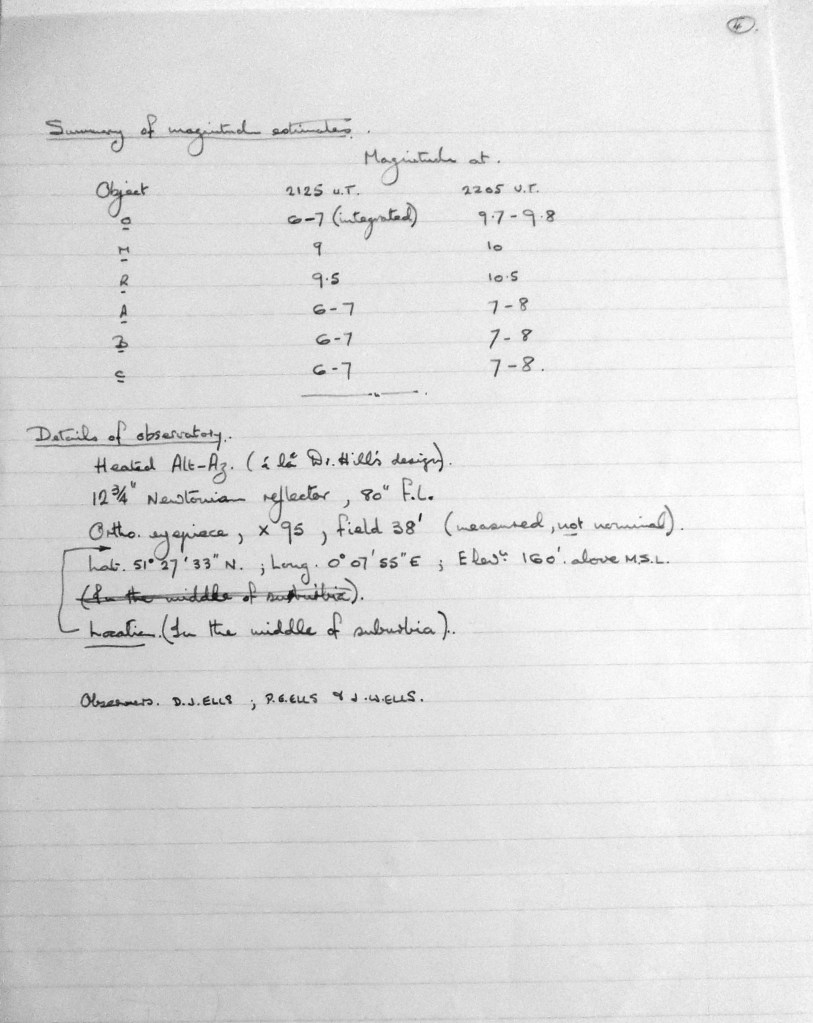 4.
Summary of magnitude estimates.
Magnitude at.
Object 2125 U.T. 2205 U.T.
O 6-7 (integrated) 9.7-9.8
M 9 10
R 9.5 10.5
A 6-7 7-8
B 6-7 7-8
C 6-7 7-8.
Details of observatory.
Heated Alt-Az. (á lá Dr. Hill's design).
12¾" Newtonian reflector, 80" F.L.
Ortho. eyepiece, x 95, field 38' (measured, not nominal).
Lat. 51° 27' 33" N. ; Long. 0° 07' 55" E ; Elevn. 160'. above M.S.L.
(In the middle of suburbia).
Location. (In the middle of suburbia).
Observers. D.J.ELLS ; P.G.ELLS & J.W.ELLS.